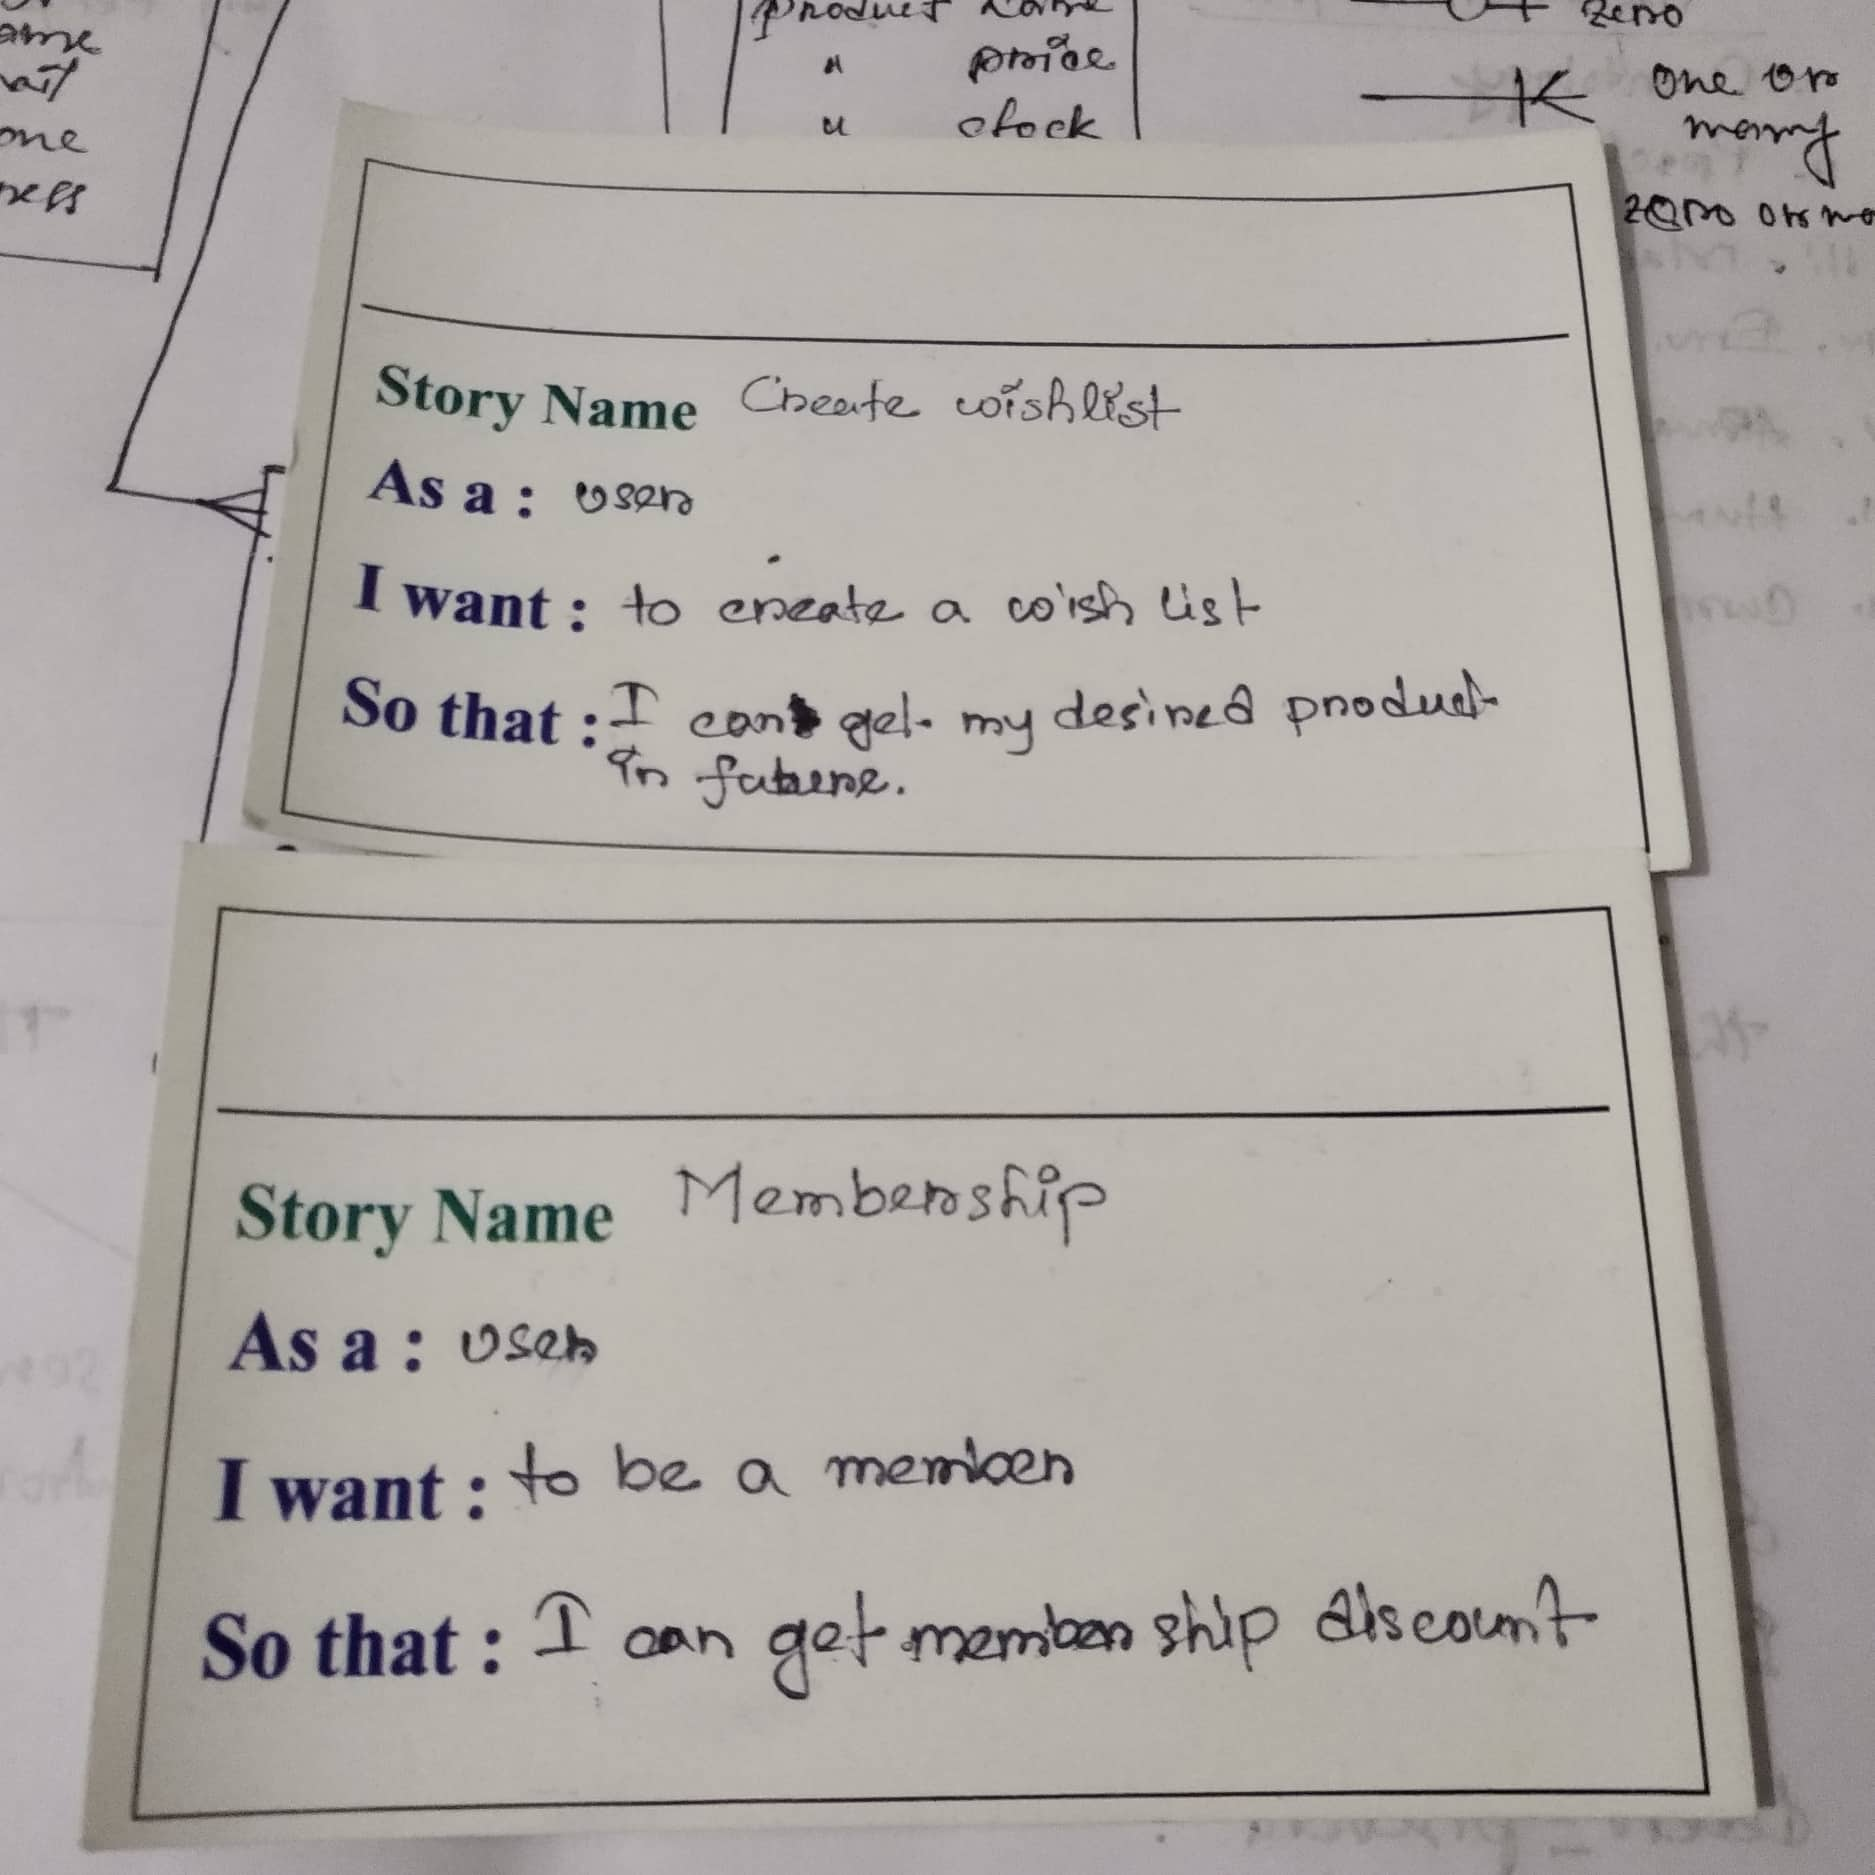 ame
ail
one
ness
product name
" price
" stock
zero
one or
many
zero or mo
Story Name Create wishlist
As a : user
I want : to create a wish list
So that : I can get my desired product
in future.
Story Name Membership
As a : user
I want : to be a member
So that : I can get member ship discount